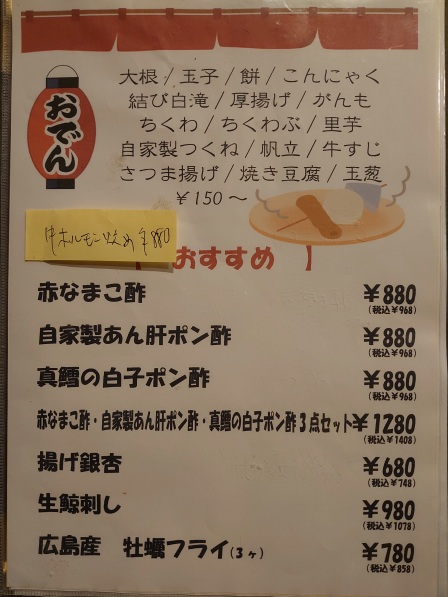 おでん
大根/玉子/餅/こんにゃく
結び白滝/厚揚げ/がんも
ちくわ/ちくわぶ/里芋
自家製つくね/帆立/牛すじ
さつま揚げ/焼き豆腐/玉葱
￥150～
牛ホルモン炒め ¥880
おすすめ 】
赤なまこ酢 ￥880
(税込￥968)
自家製あん肝ポン酢 ￥880
(税込￥968)
真鱈の白子ポン酢 ￥880
(税込￥968)
赤なまこ酢・自家製あん肝ポン酢・真鱈の白子ポン酢3点セット￥1280
(税込￥1408)
揚げ銀杏 ￥680
(税込￥748)
生鯨刺し ￥980
(税込￥1078)
広島産 牡蠣フライ(3ヶ) ￥780
(税込￥858)